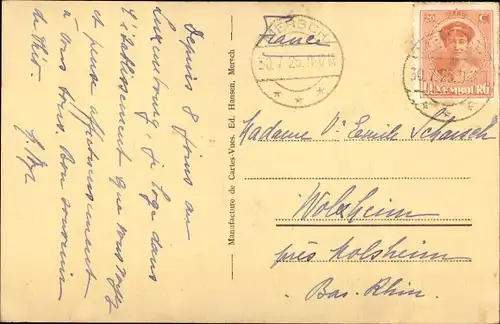 Depuis 8 jours au
Luxembourg, je loge dans
l'établissement que vous voyez
et pense affectueusement
à vous tous. Bon souvenir
de
Manufacture de Cartes-Vues. Ed. Hansen, Mersch
France
MERSCH
30.7.25.11-12M
50 C
LUXEMBOURG
30.7.25.11-12
Madame Vve Emile Scharsch
Wolxheim
près Molsheim
Bas-Rhin.